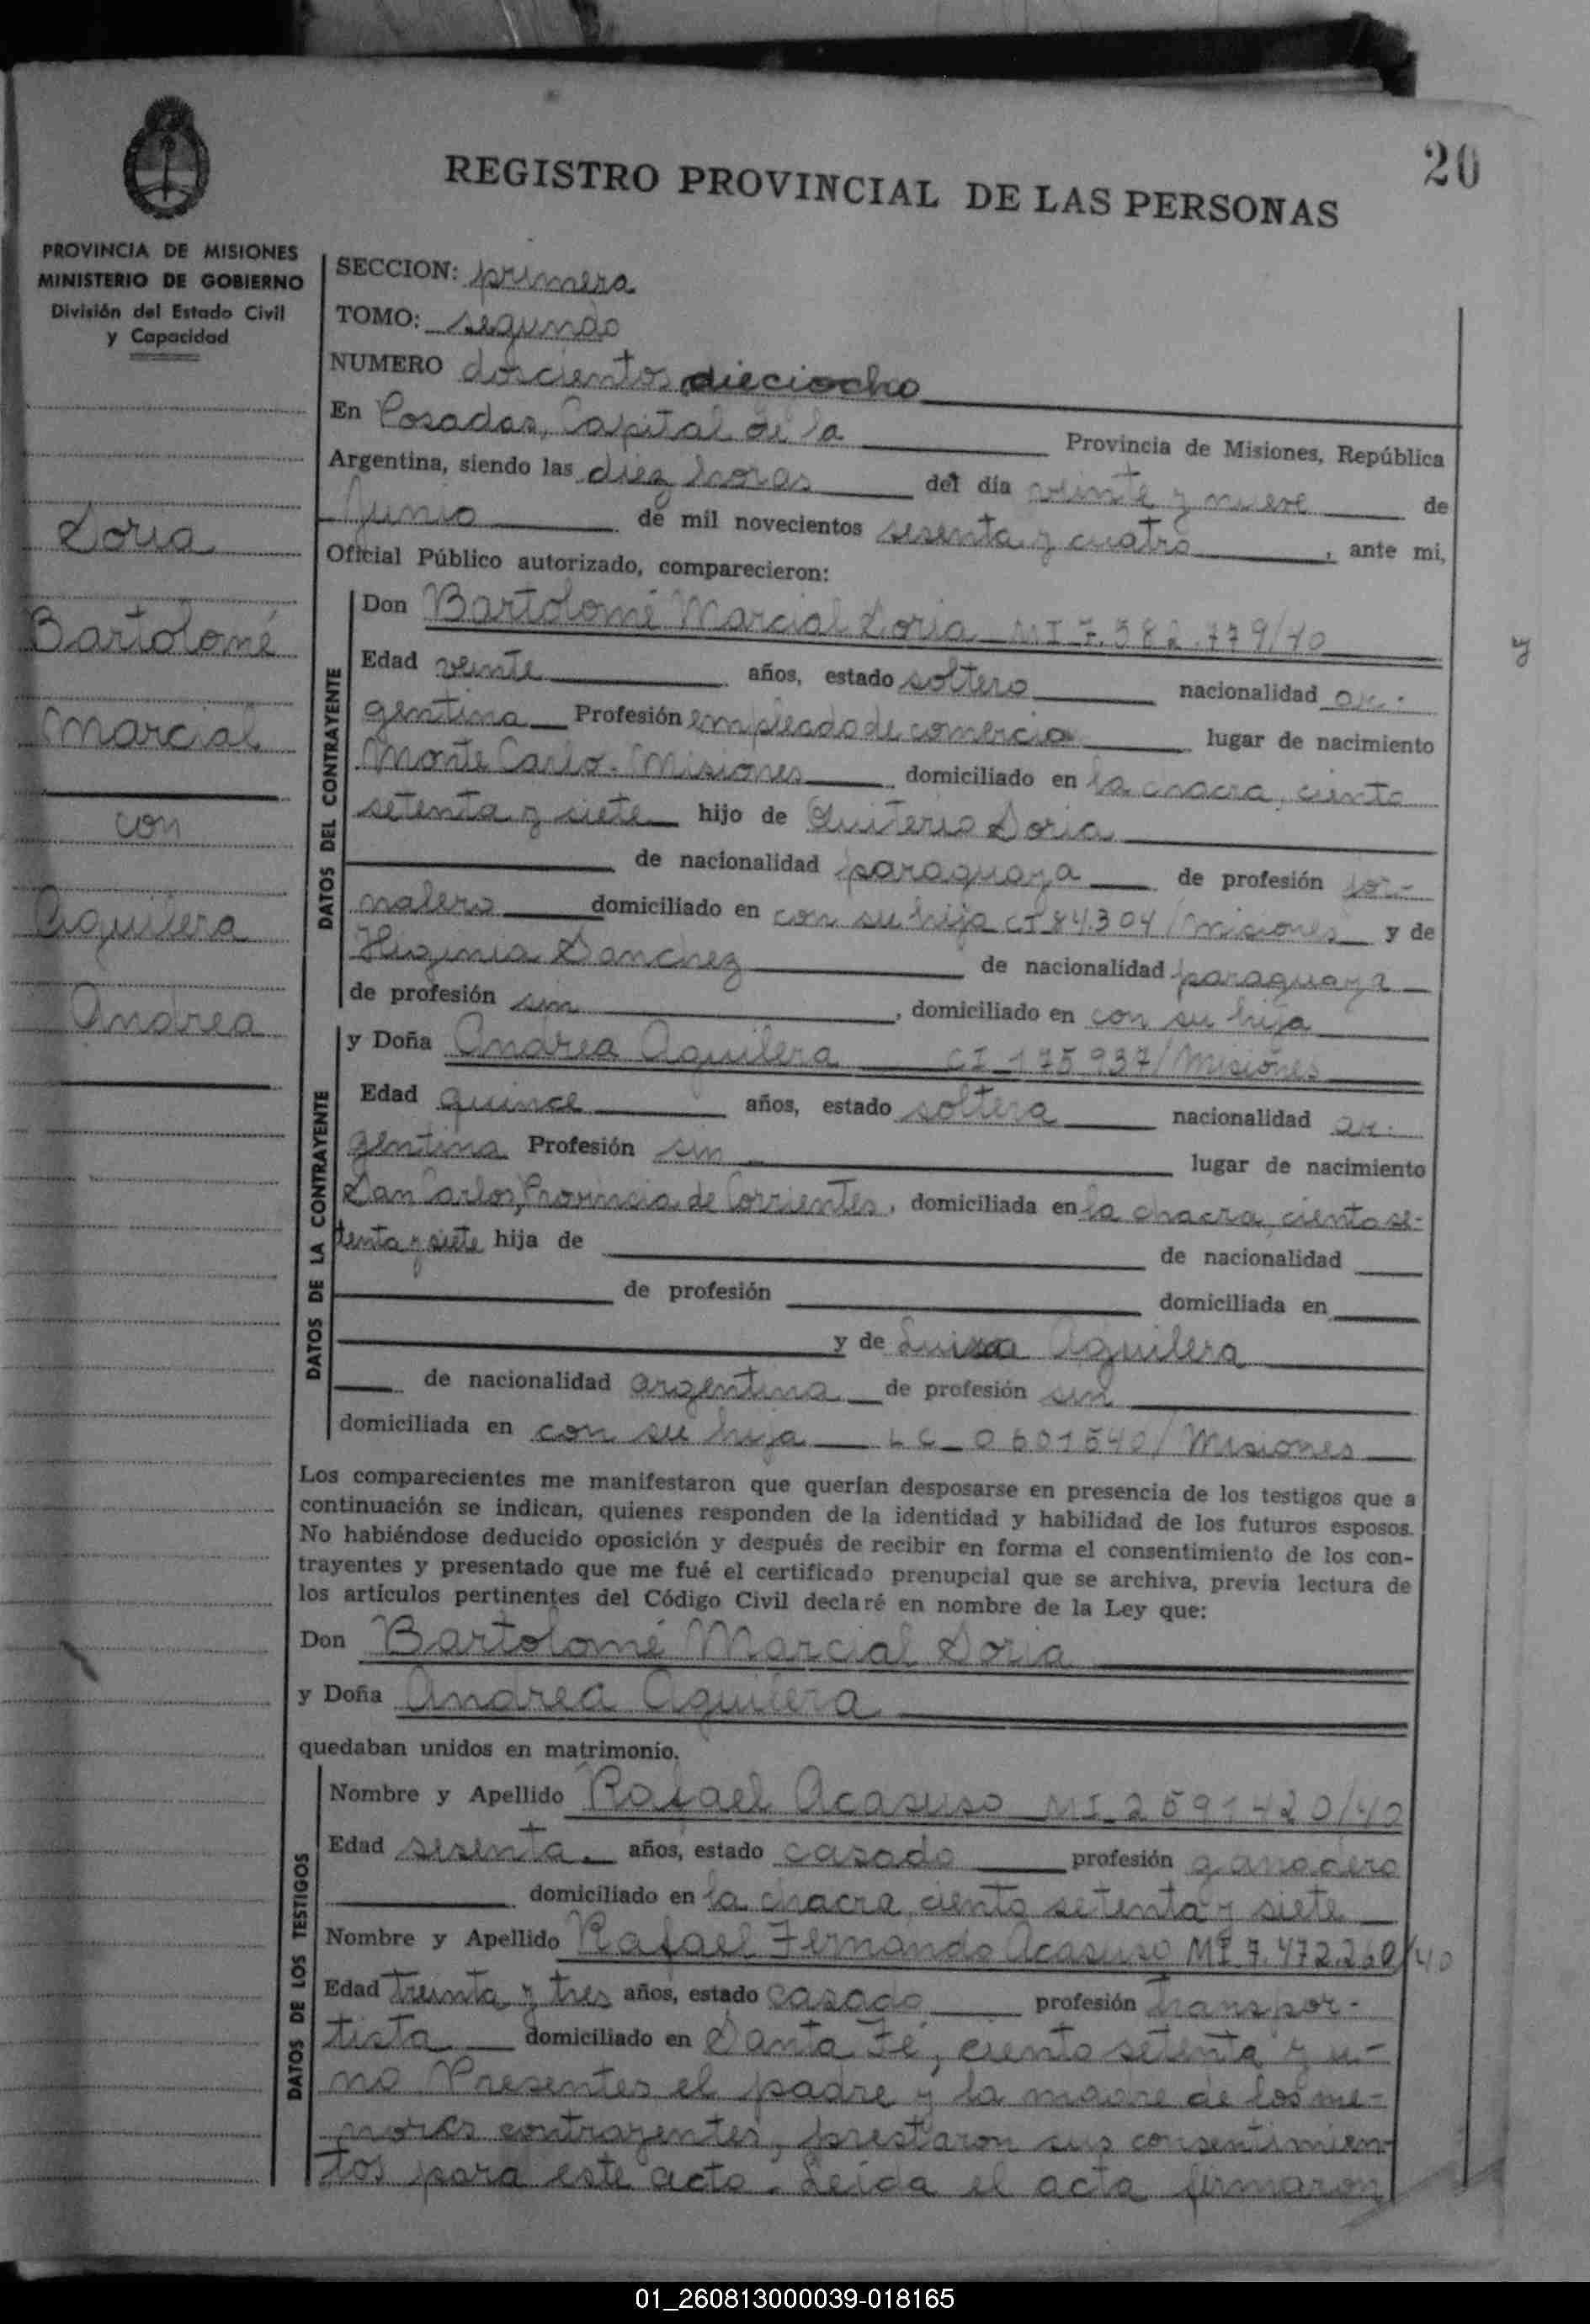 20
REGISTRO PROVINCIAL DE LAS PERSONAS
PROVINCIA DE MISIONES
MINISTERIO DE GOBIERNO
División del Estado Civil
y Capacidad
Soria
Bartolomé
Marcial
con
Aguilera
Andrea
SECCION: primera
TOMO: segundo
NUMERO doscientos dieciocho
En Posadas, Capital de la Provincia de Misiones, República
Argentina, siendo las diez horas del día veinte y nueve de
Junio de mil novecientos sesenta y cuatro, ante mi,
Oficial Público autorizado, comparecieron:
DATOS DEL CONTRAYENTE
Don Bartolomé Marcial Soria MI 7.582.779/40
Edad veinte años, estado soltero nacionalidad ar-
gentina Profesión empleado de comercio lugar de nacimiento
Monte Carlo. Misiones domiciliado en la chacra, ciento
setenta y siete hijo de Quiterio Soria
de nacionalidad paraguaya de profesión jor-
nalero domiciliado en con su hijo CI 84.304/Misiones y de
Higinia Sanchez de nacionalidad paraguaya
de profesión sin, domiciliado en con su hijo
DATOS DE LA CONTRAYENTE
y Doña Andrea Aguilera CI 175.937/Misiones
Edad quince años, estado soltera nacionalidad ar-
gentina Profesión sin lugar de nacimiento
San Carlos, Provincia de Corrientes, domiciliada en la chacra, ciento se-
tenta y siete hija de de nacionalidad
de profesión domiciliada en
y de Luisa Aguilera
de nacionalidad argentina de profesión sin
domiciliada en con su hija LC 0601540/Misiones
Los comparecientes me manifestaron que querían desposarse en presencia de los testigos que a
continuación se indican, quienes responden de la identidad y habilidad de los futuros esposos.
No habiéndose deducido oposición y después de recibir en forma el consentimiento de los con-
trayentes y presentado que me fué el certificado prenupcial que se archiva, previa lectura de
los artículos pertinentes del Código Civil declaré en nombre de la Ley que:
Don Bartolomé Marcial Soria
y Doña Andrea Aguilera
quedaban unidos en matrimonio.
DATOS DE LOS TESTIGOS
Nombre y Apellido Rafael Acasuso MI 2591420/40
Edad sesenta años, estado casado profesión ganadero
domiciliado en la chacra, ciento setenta y siete
Nombre y Apellido Rafael Fernando Acasuso MI 7.472.260/40
Edad treinta y tres años, estado casado profesión transpor-
tista domiciliado en Santa Fé, ciento setenta y u-
no. Presentes el padre y la madre de los me-
nores contrayentes, prestaron sus consentimien-
tos para este acto. Leida el acta firmaron
y
01_260813000039-018165